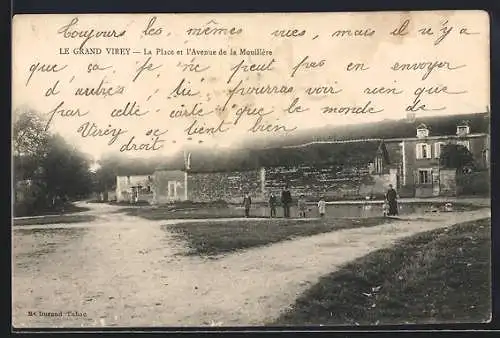 Toujours les mêmes vues, mais il n'y a
LE GRAND VIREY — La Place et l'Avenue de la Mouillère
que ça. Je ne peut pas en envoyer
d'autres. tu pourras voir rien que
par cette carte que le monde de
Virey se tient bien
droit
Me Durand Tabac